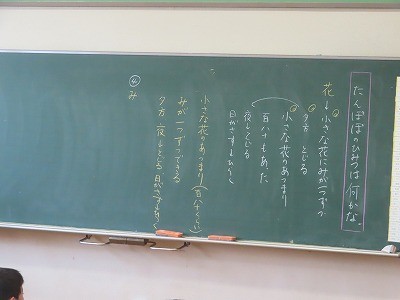 たんぽぽのひみつは何かな。
花→小さな花にみが一つずつ
夕方 とじる
小さな花のあつまり
百八十もあた
夜もとじている
日がさすとひらく
小さな花のあつまり(百八十くらい)
みが一つずつできる
夕方・夜もとじている 日がさすとひらく
④
み